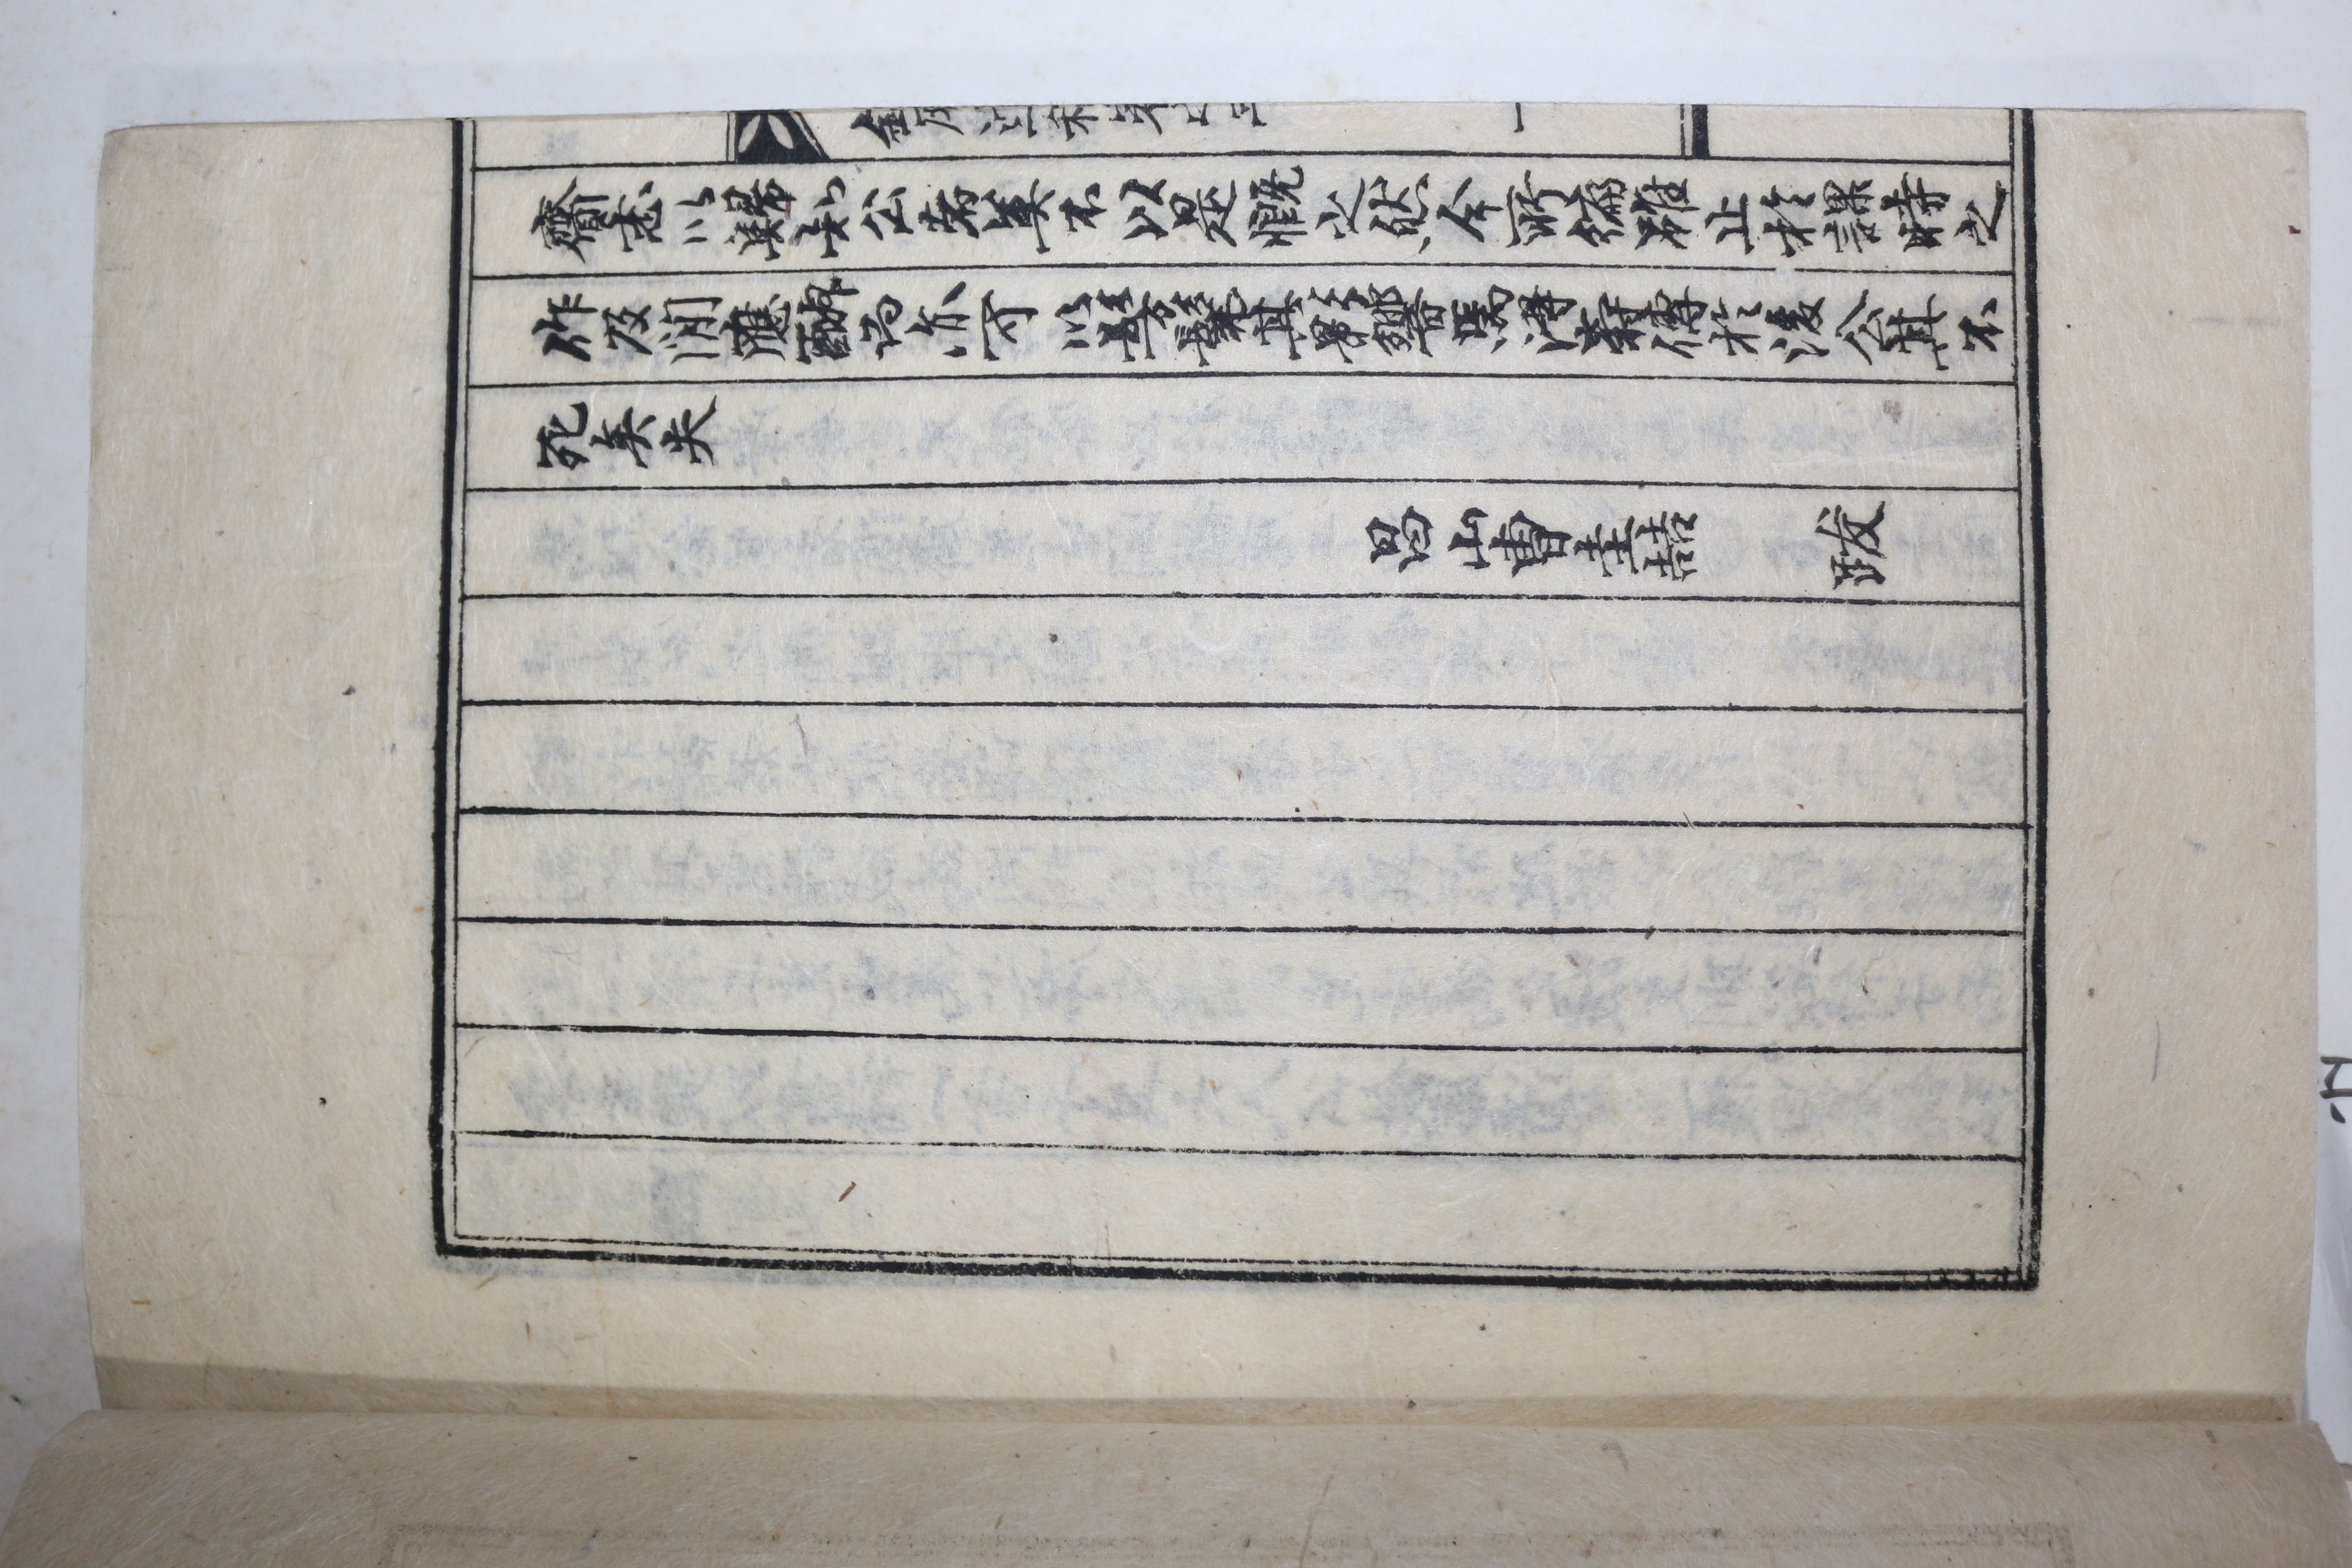 齎志以歸知公者莫不以是慨之然今所編雖止於課時之
作及閒應酬而亦可以髣髴其影響焉得壽傳於後公其不
死矣夫
昌山曺圭喆 跋